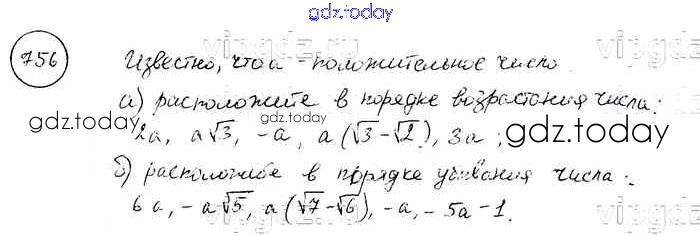 gdz.today
756 Известно, что a - положительное число.
а) расположите в порядке возрастания числа:
gdz.today gdz.today gdz.today
2a, a√3, -a, a(√3-√2), 3a;
б) расположите в порядке убывания числа:
6a, -a√5, a(√7-√6), -a, -5a-1.
gdz.today